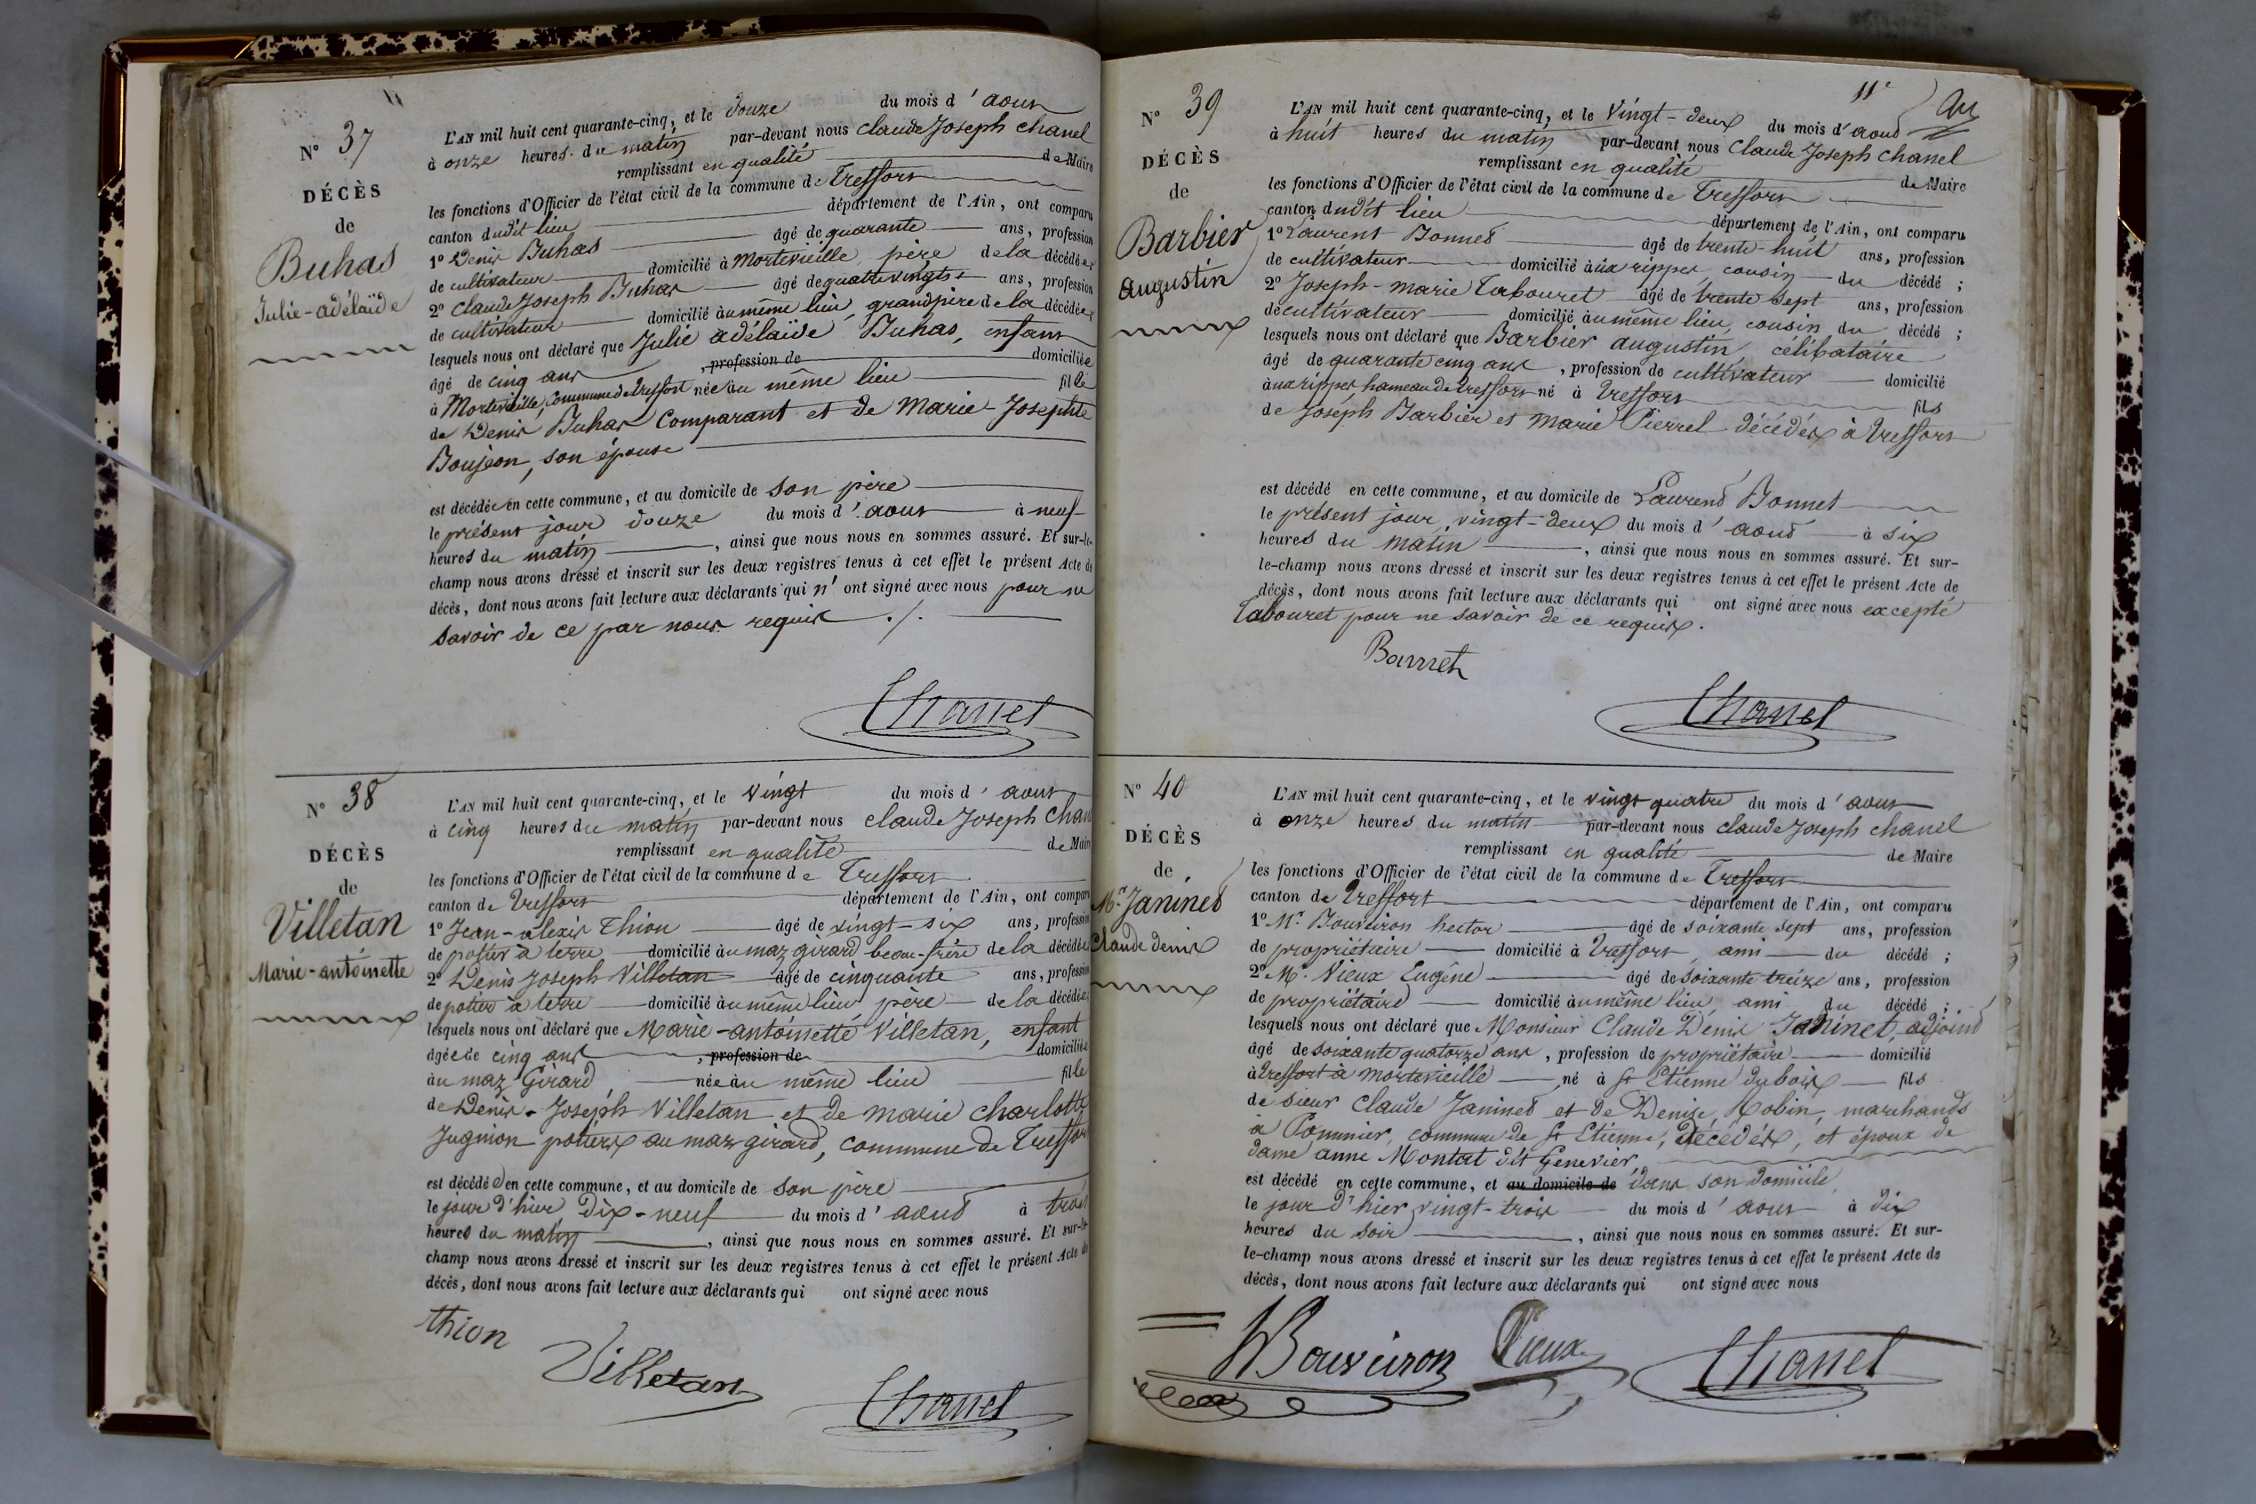 N° 37
DÉCÈS
de
Buhas
Julie-adélaïde
L'AN mil huit cent quarante-cinq, et le Douze du mois d'aout
à onze heures du matin par-devant nous Claude Joseph Chanel
remplissant en qualité de Maire
les fonctions d'Officier de l'état civil de la commune de Treffort
canton dudit lieu département de l'Ain, ont comparu
1° Denis Buhas âgé de quarante ans, profession
de cultivateur domicilié à Mortevieille père de la décédée;
2° Claude Joseph Buhas âgé de quatre vingts ans, profession
de cultivateur domicilié au même lieu, grand père de la décédée;
lesquels nous ont déclaré que Julie adélaïde Buhas, enfant
âgé de cinq ans, profession de domiciliée
à Mortevieille, commune de Treffort née au même lieu fille
de Denis Buhas Comparant et de Marie-Josephte
Boujeon, son épouse
est décédée en cette commune, et au domicile de son père
le présent jour Douze du mois d'aout à neuf
heures du matin, ainsi que nous nous en sommes assuré. Et sur-le-
champ nous avons dressé et inscrit sur les deux registres tenus à cet effet le présent Acte de
décès, dont nous avons fait lecture aux déclarants qui n'ont signé avec nous pour ne
savoir de ce par nous requis ./.
Chanel
N° 38
DÉCÈS
de
Villetan
Marie-antoinette
L'AN mil huit cent quarante-cinq, et le vingt du mois d'aout
à cinq heures du matin par-devant nous Claude Joseph Chan
remplissant en qualité de Maire
les fonctions d'Officier de l'état civil de la commune de Treffort
canton de Treffort département de l'Ain, ont comparu
1° Jean-alexis Thion âgé de vingt-six ans, profession
de potier à terre domicilié au maz girard beau-frère de la décédée
2° Denis Joseph Villetan âgé de cinquante ans, profession
de potier à terre domicilié au même lieu père de la décédée;
lesquels nous ont déclaré que Marie-antoinette Villetan, enfant
âgée de cinq ans, profession de domiciliée
au maz Girard, née au même lieu fille
de Denis-Joseph Villetan et de marie Charlotte
Jugnion potiers au maz girard, commune de Treffort
est décédée en cette commune, et au domicile de son père
le jour d'hier Dix-neuf du mois d'aout à trois
heures du matin, ainsi que nous nous en sommes assuré. Et sur-le-
champ nous avons dressé et inscrit sur les deux registres tenus à cet effet le présent Acte de
décès, dont nous avons fait lecture aux déclarants qui ont signé avec nous
thion
Villetan
Chanel
11e
N° 39
DÉCÈS
de
Barbier
augustin
L'AN mil huit cent quarante-cinq, et le Vingt-deux du mois d'aout
à huit heures du matin par-devant nous Claude Joseph Chanel
remplissant en qualité de Maire
les fonctions d'Officier de l'état civil de la commune de Treffort
canton dudit lieu département de l'Ain, ont comparu
1° Laurent Bonnet âgé de trente-huit ans, profession
de cultivateur domicilié aux rippes, cousin du décédé;
2° Joseph-marie Tabouret âgé de trente sept ans, profession
de cultivateur domicilié au même lieu, cousin du décédé;
lesquels nous ont déclaré que Barbier augustin, célibataire
âgé de quarante cinq ans, profession de cultivateur domicilié
aux rippes hameau de treffort né à Treffort fils
de Joseph Barbier et Marie Pierrel décédés à Treffort
est décédé en cette commune, et au domicile de Laurent Bonnet
le présent jour, vingt-deux du mois d'aout à six
heures du matin, ainsi que nous nous en sommes assuré. Et sur-
le-champ nous avons dressé et inscrit sur les deux registres tenus à cet effet le présent Acte de
décès, dont nous avons fait lecture aux déclarants qui ont signé avec nous excepté
Tabouret pour ne savoir de ce requis.
Bonnet
Chanel
N° 40
DÉCÈS
de
Mr. Janinet
Claude Denis
L'AN mil huit cent quarante-cinq, et le vingt quatre du mois d'aout
à onze heures du matin par-devant nous Claude Joseph Chanel
remplissant en qualité de Maire
les fonctions d'Officier de l'état civil de la commune de Treffort
canton de Treffort département de l'Ain, ont comparu
1° Mr. Bouveiron hector âgé de soixante sept ans, profession
de propriétaire domicilié à Treffort, ami du décédé;
2° Mr. Vieux Eugéne âgé de soixante treize ans, profession
de propriétaire domicilié au même lieu, ami du décédé;
lesquels nous ont déclaré que Monsieur Claude Denis Janinet, adjoint
âgé de soixante quatorze ans, profession de propriétaire domicilié
à Treffort à mortevieille né à St Etienne du bois fils
de sieur Claude Janinet et de Denise Robin, marchands
à Pommier, commune de St Etienne, Décédés, et époux de
dame anne Montat dit Genevier,
est décédé en cette commune, et au domicile de dans son domicile,
le jour d'hier vingt-trois du mois d'aout à dix
heures du soir, ainsi que nous nous en sommes assuré. Et sur-
le-champ nous avons dressé et inscrit sur les deux registres tenus à cet effet le présent Acte de
décès, dont nous avons fait lecture aux déclarants qui ont signé avec nous
HBouveiron
Vieux
Chanel